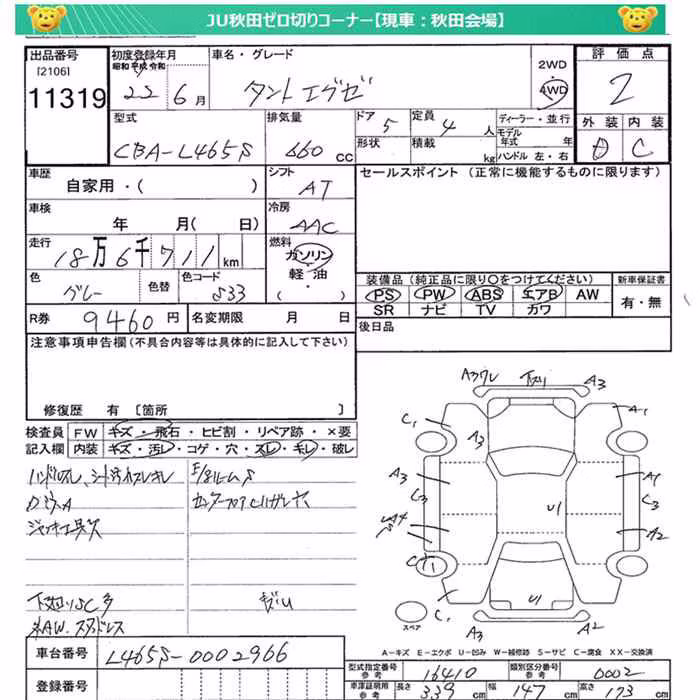 JU秋田ゼロ切りコーナー【現車：秋田会場】
出品番号
[2106]
11319
初度登録年月
昭和 平成 令和
22 6月
車名・グレード
タントエグゼ
2WD
4WD
評価点
2
型式
CBA-L465S
排気量
660 cc
ドア 5
形状
定員 4 人
積載 kg
ディーラー・並行
モデル年式 年
ハンドル 左・右
外装 D
内装 C
車歴
自家用・( )
シフト
AT
セールスポイント (正常に機能するものに限ります)
車検
年 月( 日)
冷房
AAC
走行
18万6千711km
燃料
ガソリン
・
軽油
( ・ )
色
グレー
色替
色コード
S33
装備品 (純正品に限り○をつけてください)
PS PW ABS エアB AW
SR ナビ TV カワ
新車保証書
有・無
R券 9460円
名変期限 月 日
後日品
注意事項申告欄 (不具合内容等は具体的に記入して下さい)
修復歴 有 [箇所 ]
検査員 FW キズ・飛石・ヒビ割・リペア跡・×要
記入欄 内装 キズ・汚レ・コゲ・穴・スレ・キレ・破レ
ハンドルスレ、シート汚スレキレ
下廻りSC多
A3ワレ 下スリ A3
C1 A3 A1
A3 C3 U1 A1 C3
A4 A2
C1 X C1 U1
スペア A3 A2
A－キズ E－エクボ U－凹み W－補修跡 S－サビ C－腐食 XX－交換済
車台番号 L465S-0002966
登録番号
型式指定番号 参考 16410
類別区分番号 参考 0002
車庫証明用 参考 長さ 339 cm 幅 147 cm 高さ 173 cm